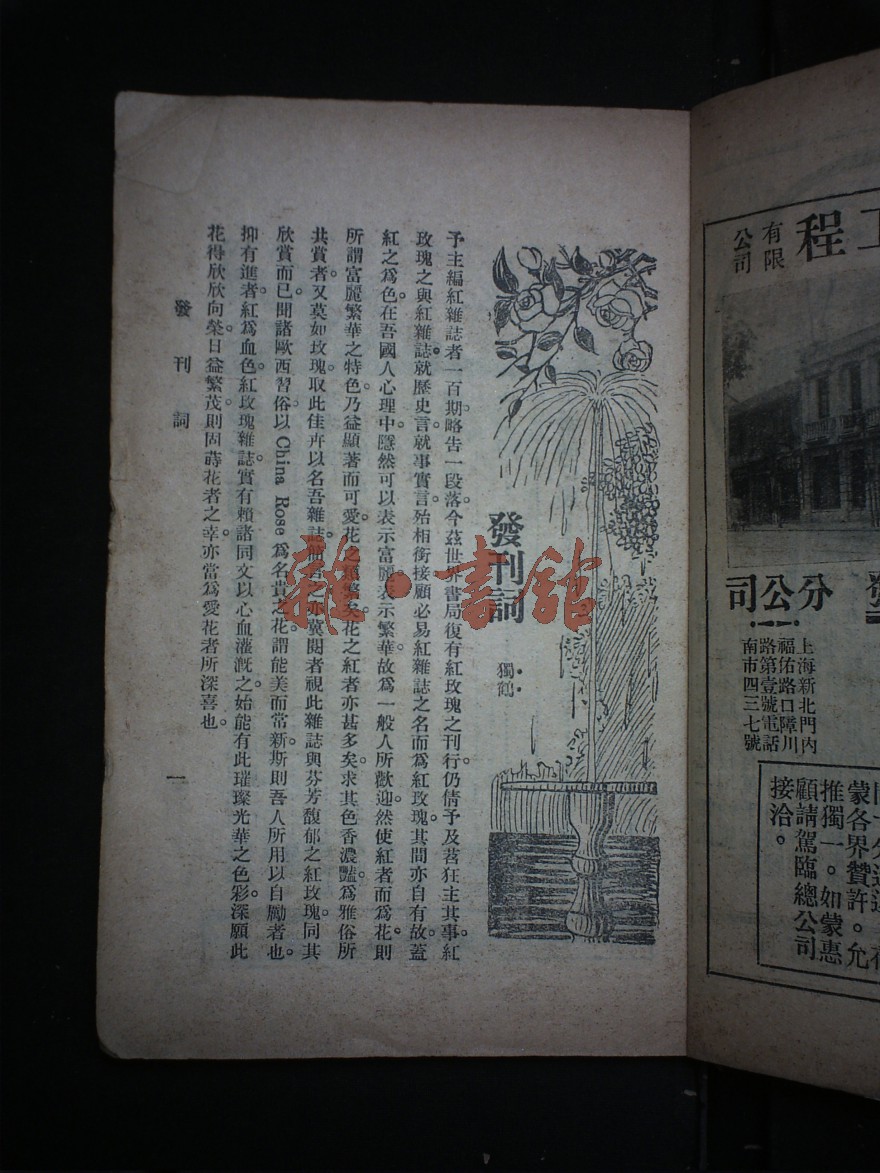 發刊詞
獨鶴
予主編紅雜誌者一百期。略告一段落。今茲世界書局復有紅玫瑰之刊行。仍倩予及苕狂主其事。紅
玫瑰之與紅雜誌。就歷史言。就事實言。殆相銜接。顧必易紅雜誌之名而爲紅玫瑰。其間亦自有故。蓋
紅之爲色。在吾國人心理中。隱然可以表示富麗。表示繁華。故爲一般人所歡迎。然使紅者而爲花。則
所謂富麗繁華之特色。乃益顯著而可愛。花之類繁矣。花之紅者亦甚多矣。求其色香濃豔。爲雅俗所
共賞者。又莫如玫瑰。取此佳卉以名吾雜誌。亦冀閱者視此雜誌與芬芳馥郁之紅玫瑰。同其
欣賞而已。聞諸歐西習俗。以China Rose爲名貴之花。謂能美而常新。斯則吾人所用以自勵者也。
抑有進者。紅爲血色。紅玫瑰雜誌。實有賴諸同文以心血灌漑之。始能有此璀璨光華之色彩。深願此
花得欣欣向榮。日益繁茂。則固蒔花者之幸。亦當爲愛花者所深喜也。
發刊詞
一
雜·書館
工程
有限
公司
發
分公司
上海新北門內
福佑路口障川
路第壹號電話
南市四三七號
蒙各界贊許。允
推獨一。如蒙惠
顧請駕臨總公司
接洽。